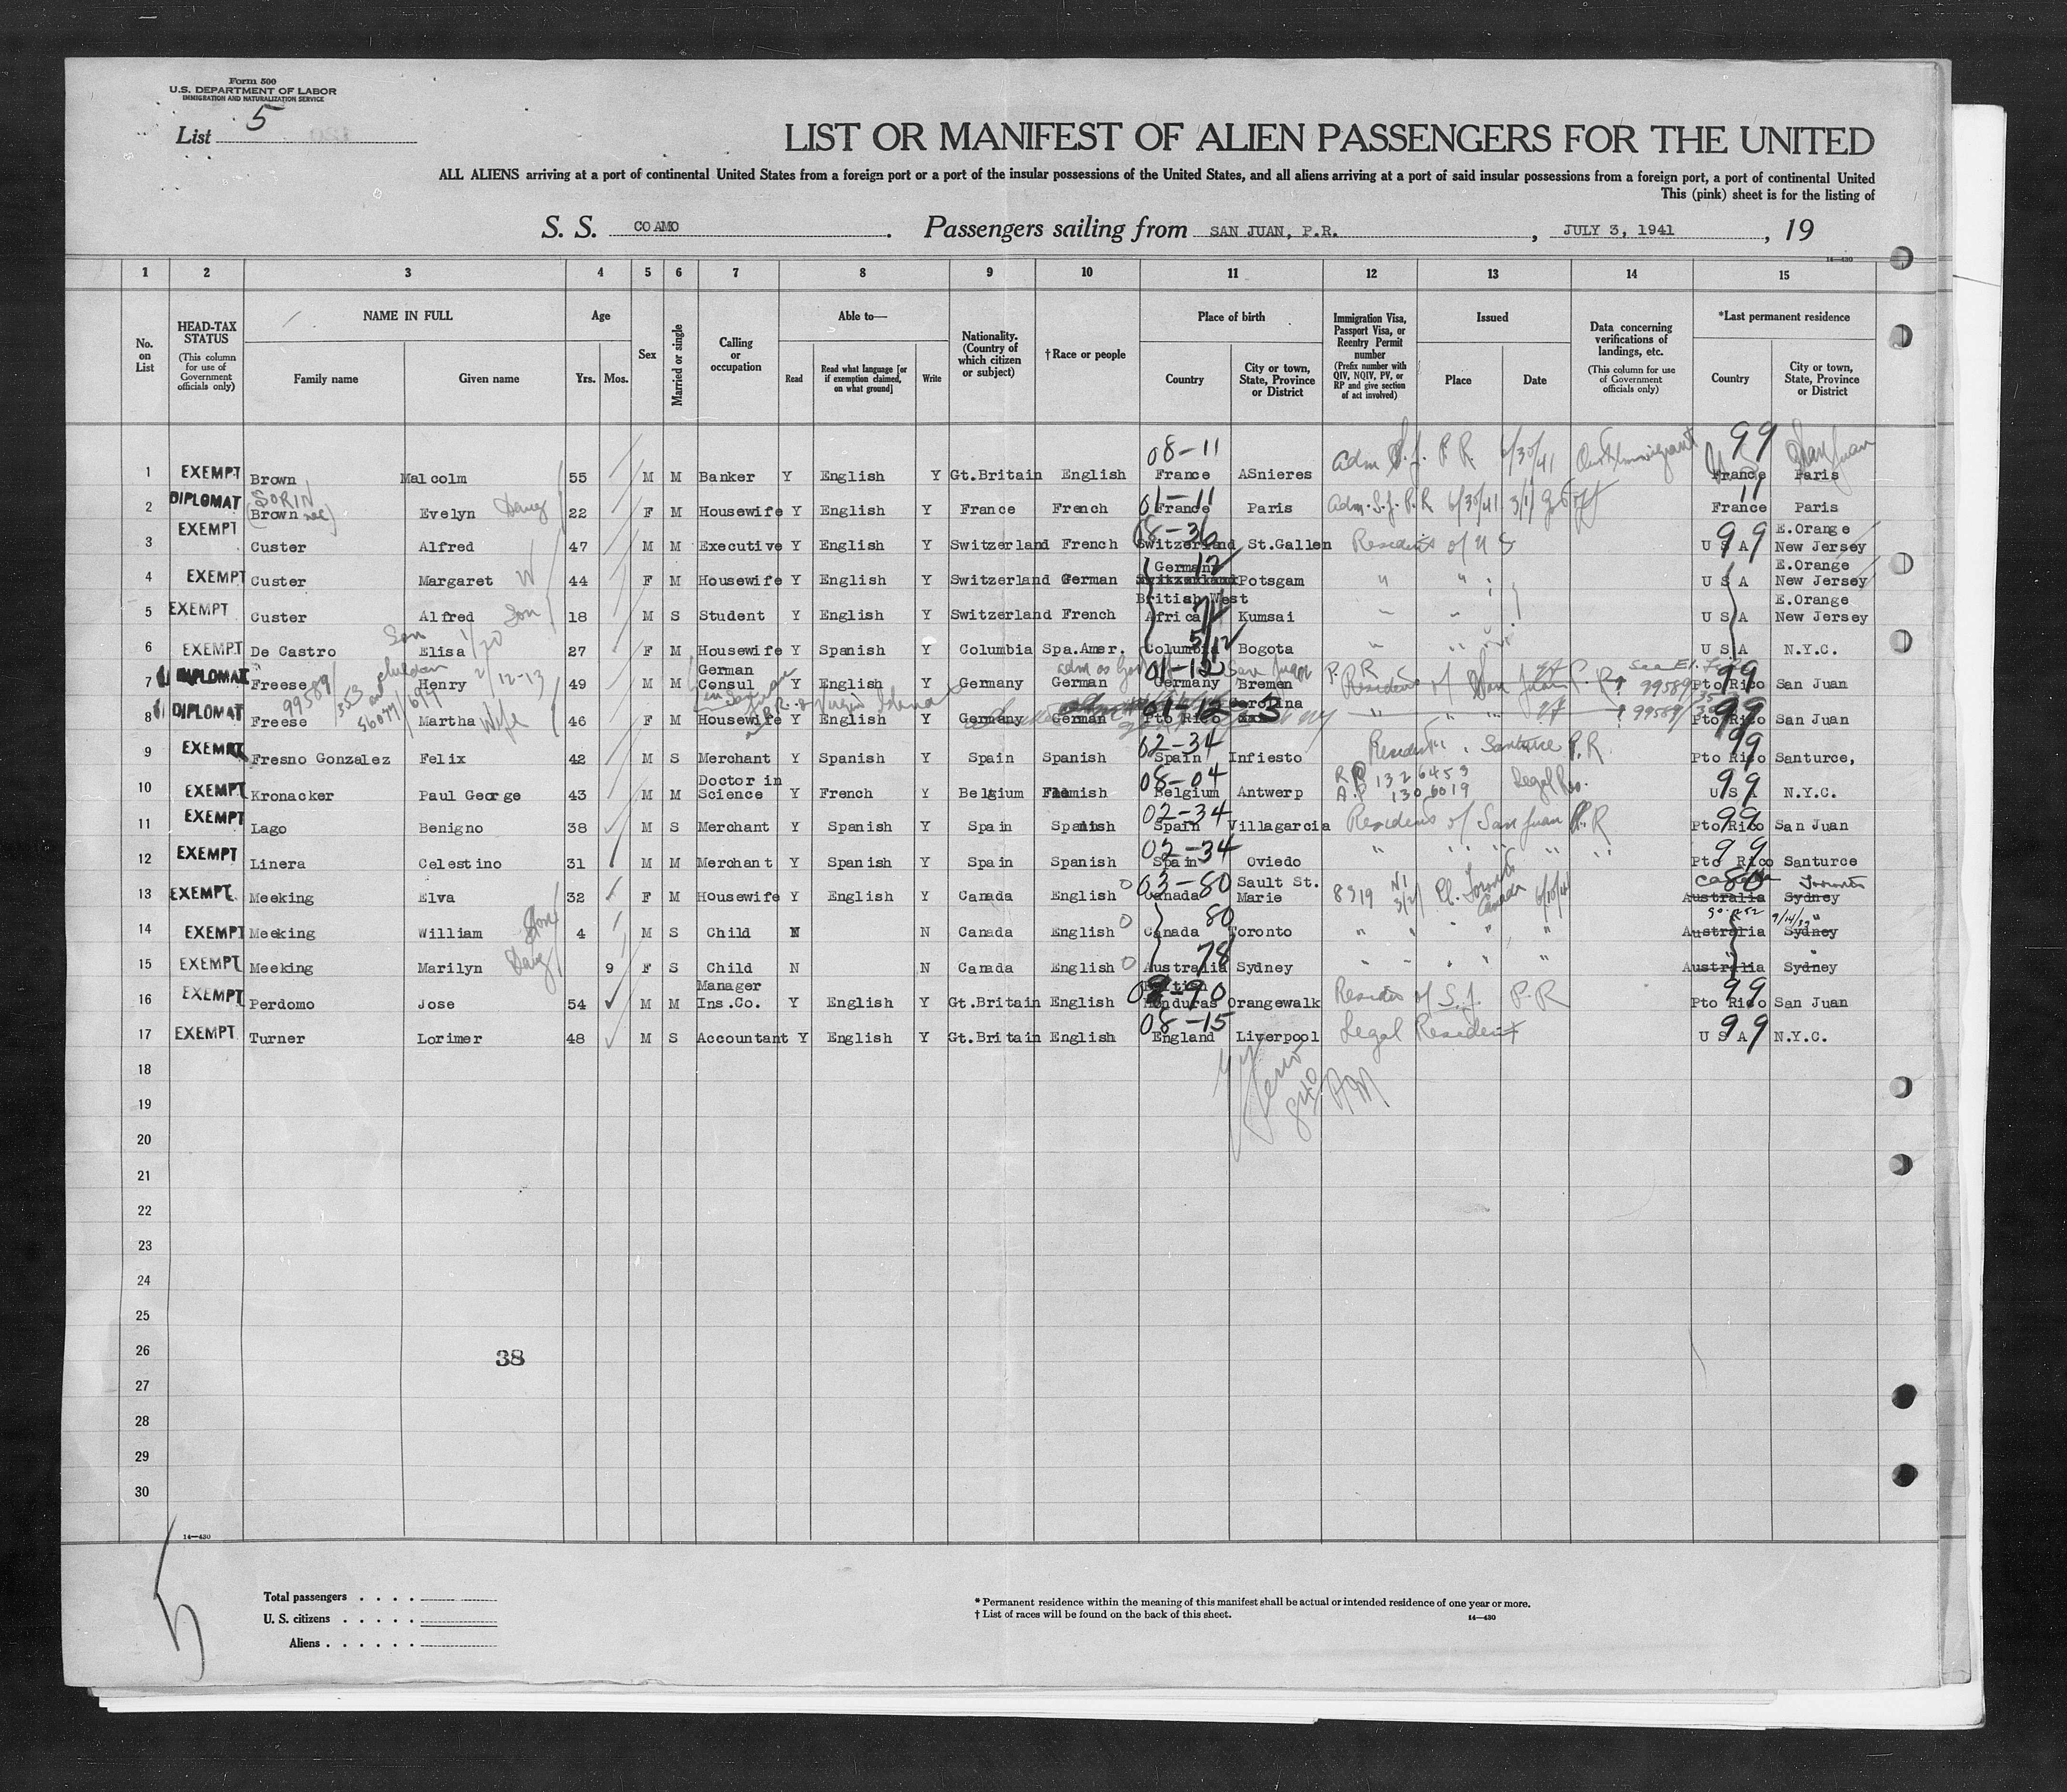 Form 500
U.S. DEPARTMENT OF LABOR
IMMIGRATION AND NATURALIZATION SERVICE
List 5
LIST OR MANIFEST OF ALIEN PASSENGERS FOR THE UNITED
ALL ALIENS arriving at a port of continental United States from a foreign port or a port of the insular possessions of the United States, and all aliens arriving at a port of said insular possessions from a foreign port, a port of continental United
This (pink) sheet is for the listing of
S. S. COAMO. Passengers sailing from SAN JUAN, P.R., JULY 3, 1941, 19
14—430
1 2 3 4 5 6 7 8 9 10 11 12 13 14 15
No. on List
HEAD-TAX STATUS
(This column for use of Government officials only)
NAME IN FULL
Family name
Given name
Age
Yrs. Mos.
Sex
Married or single
Calling or occupation
Able to—
Read
Read what language [or if exemption claimed, on what ground]
Write
Nationality. (Country of which citizen or subject)
†Race or people
Place of birth
Country
City or town, State, Province or District
Immigration Visa, Passport Visa, or Reentry Permit number
(Prefix number with QIV, NQIV, PV, or RP and give section of act involved)
Issued
Place
Date
Data concerning verifications of landings, etc.
(This column for use of Government officials only)
*Last permanent residence
Country
City or town, State, Province or District
1 EXEMPT Brown Malcolm 55 M M Banker Y English Y Gt.Britain English 08-11 France ASnieres Adm S.J. P.R. 6/30/41 99 France Paris San Juan
2 DIPLOMAT SORIN (Brown nee) Evelyn Daug 22 F M Housewife Y English Y France French 01-11 France Paris Adm. S.J. P.R 6/30/41 3/1 11 France Paris
3 EXEMPT Custer Alfred 47 M M Executive Y English Y Switzerland French 08-36 Switzerland St.Gallen Residents of U S 99 U S A E.Orange New Jersey
4 EXEMPT Custer Margaret W 44 F M Housewife Y English Y Switzerland German Germany 12 Potsgam " " U S A E.Orange New Jersey
5 EXEMPT Custer Alfred Son 18 M S Student Y English Y Switzerland French British West Africa Kumsai " " U S A E.Orange New Jersey
6 EXEMPT De Castro Elisa 27 F M Housewife Y Spanish Y Columbia Spa.Amer. Columbia Bogota " " U S A N.Y.C.
7 DIPLOMAT Freese Henry 49 M M German Consul Y English Y Germany German 01-12 Germany Bremen Residents of San Juan P. R. 99589 99 Pto Rico San Juan
8 DIPLOMAT Freese Martha Wife 46 F M Housewife Y English Y Germany German 01-12 Pto Rico Carolina " " " 99589 99 Pto Rico San Juan
9 EXEMPT Fresno Gonzalez Felix 42 M S Merchant Y Spanish Y Spain Spanish 02-34 Spain Infiesto Santurce P.R. 99 Pto Rico Santurce,
10 EXEMPT Kronacker Paul George 43 M M Doctor in Science Y French Y Belgium Flemish 08-04 Belgium Antwerp R P 1326453 A.P 1306019 Legal Res. 99 U S A N.Y.C.
11 EXEMPT Lago Benigno 38 M S Merchant Y Spanish Y Spain Spanish 02-34 Spain Villagarcia Residents of San Juan P.R 99 Pto Rico San Juan
12 EXEMPT Linera Celestino 31 M M Merchant Y Spanish Y Spain Spanish 02-34 Spain Oviedo " " " " " 99 Pto Rico Santurce
13 EXEMPT Meeking Elva 32 F M Housewife Y English Y Canada English 03-80 Canada Sault St. Marie 8319 3/2/ Toronto Canada 6/10/41 Canada 80 Toronto Australia Sydney
14 EXEMPT Meeking William Son 4 M S Child N N Canada English 80 Canada Toronto " " " " 9/14/39 Australia Sydney
15 EXEMPT Meeking Marilyn Daug 9 F S Child N N Canada English 78 Australia Sydney " " " " Australia Sydney
16 EXEMPT Perdomo Jose 54 M M Manager Ins.Co. Y English Y Gt.Britain English British Honduras Orangewalk Resides of S.J. P-R 99 Pto Rico San Juan
17 EXEMPT Turner Lorimer 48 M S Accountant Y English Y Gt.Britain English 08-15 England Liverpool Legal Resident 99 U S A N.Y.C.
18
19
20
21
22
23
24
25
26 38
27
28
29
30
14—430
5
Total passengers
U. S. citizens
Aliens
* Permanent residence within the meaning of this manifest shall be actual or intended residence of one year or more.
† List of races will be found on the back of this sheet.
14—430